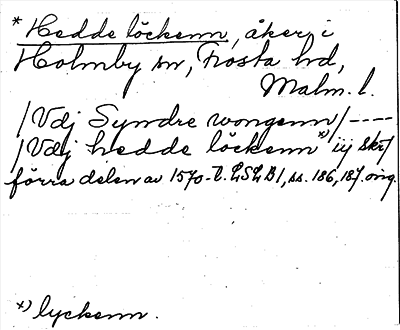 * Hedde löckenn, åker i
Holmby sn, Frosta hd,
Malm. l.
/Vdj Syndre wongenn/----
/Vdj hedde löckenn*) iij skr/
förra delen av 1570-t. LSLB1, ss. 186, 187. orig.
*) lyckenn.